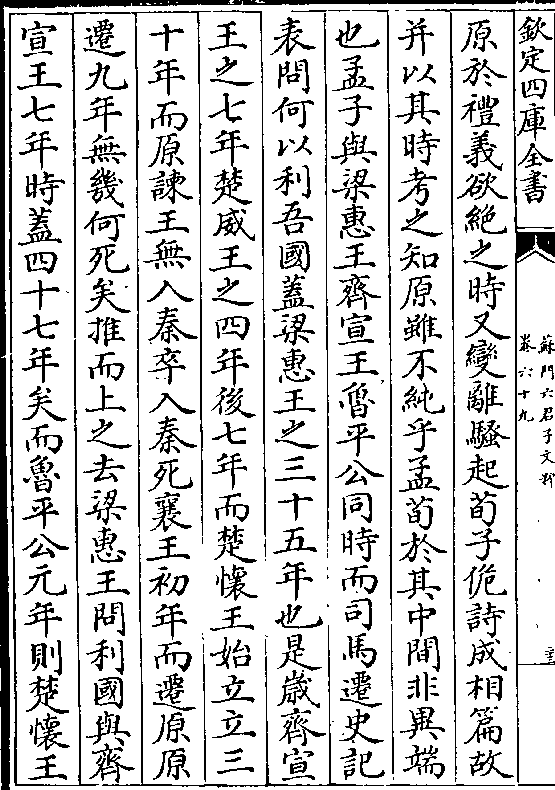 欽定四庫全書
蘇門六君子文粹
卷六十九
原於禮義欲絶之時又變離騷起荀子佹詩成相篇故
并以其時考之知原雖不純乎孟荀於其中間非異端
也孟子與梁惠王齊宣王魯平公同時而司馬遷史記
表問何以利吾國蓋梁惠王之三十五年也是歲齊宣
王之七年楚威王之四年後七年而楚懷王始立立三
十年而原諫王無入秦卒入秦死襄王初年而遷原原
遷九年無幾何死矣推而上之去梁惠王問利國與齊
宣王七年時蓋四十七年矣而魯平公元年則楚懷王